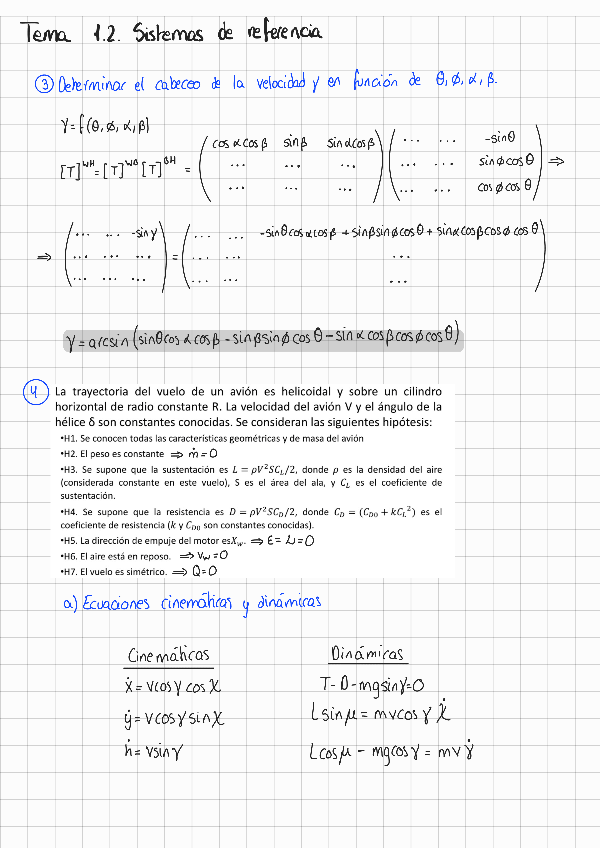 Tema 1.2. Sistemas de referencia
③ Determinar el cabeceo de la velocidad γ en función de θ, ϕ, α, β.
γ = f(θ, ϕ, α, β)
[T]^WH = [T]^WB [T]^BH = ( cos α cos β sin β sin α cos β ) ( ... ... -sin θ ) ⇒
( ... ... ... ) ( ... ... sin ϕ cos θ )
( ... ... ... ) ( ... ... cos ϕ cos θ )
⇒ ( ... ... -sin γ ) = ( ... ... -sin θ cos α cos β + sin β sin ϕ cos θ + sin α cos β cos ϕ cos θ )
( ... ... ... ) ( ... ... ... )
( ... ... ... ) ( ... ... ... )
γ = arcsin (sin θ cos α cos β - sin β sin ϕ cos θ - sin α cos β cos ϕ cos θ)
④ La trayectoria del vuelo de un avión es helicoidal y sobre un cilindro
horizontal de radio constante R. La velocidad del avión V y el ángulo de la
hélice δ son constantes conocidas. Se consideran las siguientes hipótesis:
•H1. Se conocen todas las características geométricas y de masa del avión
•H2. El peso es constante ⇒ ṁ = 0
•H3. Se supone que la sustentación es L = ρV²SC_L/2, donde ρ es la densidad del aire
(considerada constante en este vuelo), S es el área del ala, y C_L es el coeficiente de
sustentación.
•H4. Se supone que la resistencia es D = ρV²SC_D/2, donde C_D = (C_D0 + kC_L²) es el
coeficiente de resistencia (k y C_D0 son constantes conocidas).
•H5. La dirección de empuje del motor es X_w. ⇒ ε = ν = 0
•H6. El aire está en reposo. ⇒ V_w = 0
•H7. El vuelo es simétrico. ⇒ Q = 0
a) Ecuaciones cinemáticas y dinámicas
Cinemáticas Dinámicas
ẋ = v cos γ cos χ T - D - mg sin γ = 0
ẏ = v cos γ sin χ L sin μ = m v cos γ χ̇
ḣ = v sin γ L cos μ - mg cos γ = m v γ̇